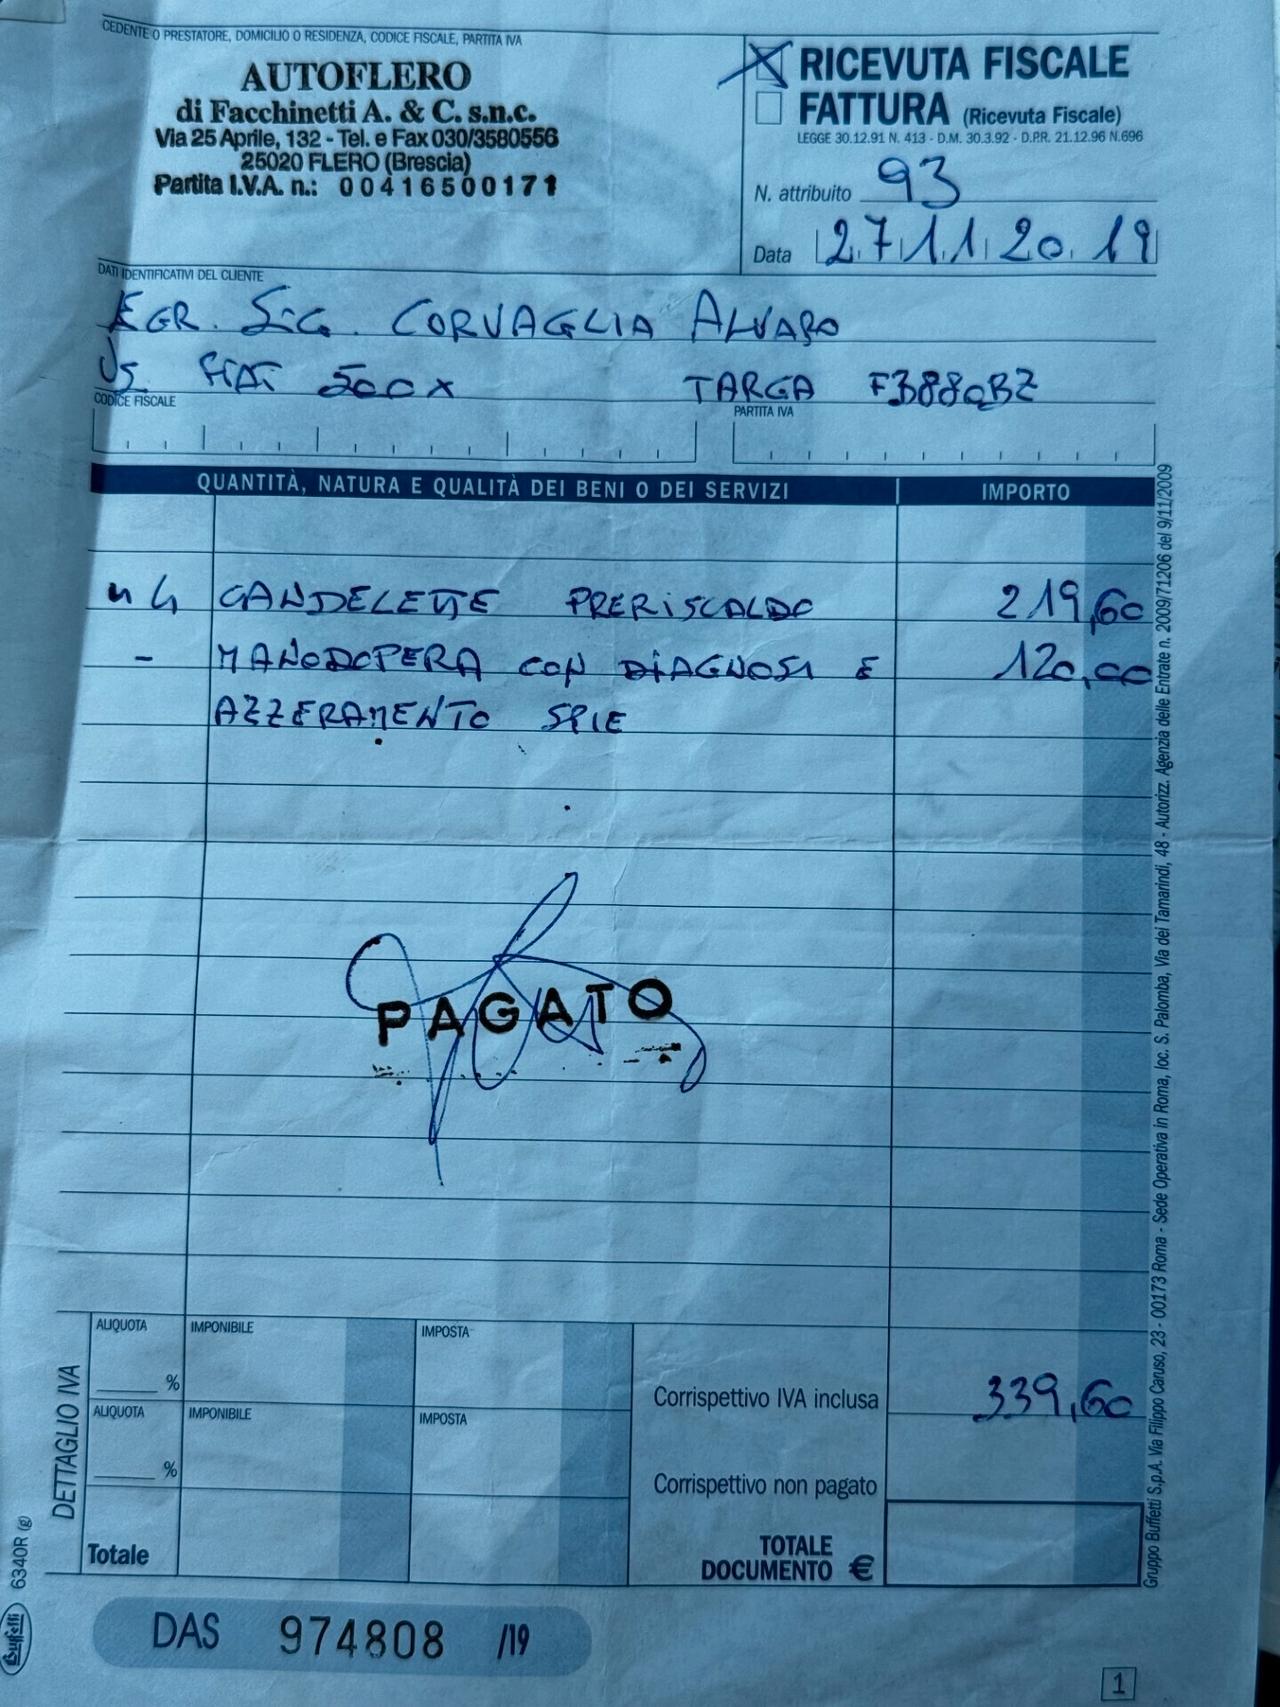 CEDENTE O PRESTATORE, DOMICILIO O RESIDENZA, CODICE FISCALE, PARTITA IVA
AUTOFLERO
di Facchinetti A. & C. s.n.c.
Via 25 Aprile, 132 - Tel. e Fax 030/3580556
25020 FLERO (Brescia)
Partita I.V.A. n.: 00416500171
RICEVUTA FISCALE
FATTURA (Ricevuta Fiscale)
LEGGE 30.12.91 N. 413 - D.M. 30.3.92 - D.P.R. 21.12.96 N.696
N. attribuito 93
Data 27 11 2019
DATI IDENTIFICATIVI DEL CLIENTE
EGR. SIG. CORVAGLIA ALVARO
VS FIAT 500X TARGA FB880BZ
CODICE FISCALE PARTITA IVA
QUANTITÀ, NATURA E QUALITÀ DEI BENI O DEI SERVIZI IMPORTO
n 4 CANDELETTE PRERISCALDO 219,60
- MANODOPERA CON DIAGNOSI E 120,00
AZZERAMENTO SPIE
PAGATO
DETTAGLIO IVA
ALIQUOTA IMPONIBILE IMPOSTA
%
Corrispettivo IVA inclusa 339,60
ALIQUOTA IMPONIBILE IMPOSTA
%
Corrispettivo non pagato
Totale
TOTALE
DOCUMENTO €
DAS 974808 /19
1
Buffetti 6340R (g)
Gruppo Buffetti S.p.A. Via Filippo Caruso, 23 - 00173 Roma - Sede Operativa in Roma, loc. S. Palomba, Via dei Tamarindi, 48 - Autorizz. Agenzia delle Entrate n. 2009/71206 del 9/11/2009